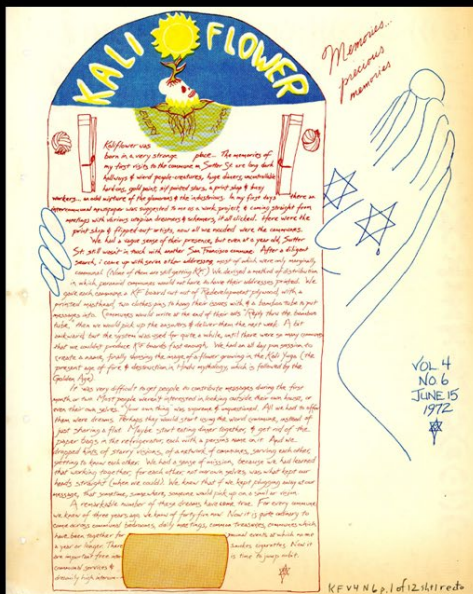 KALI FLOWER
Memories...
precious
memories
Kaliflower was
born in a very strange place... The memories of
my first visits to the commune on Sutter St. are long dark
hallways & weird people-creatures, huge doors, uncontrollable
hard-ons, gold paint, air painted stars, a print shop & busy
workers — an odd mixture of the glamorous & the industrious. In my first days there an
intercommunal newspaper was suggested to me as a work project, & coming straight from
meetings with various utopian dreamers & schemers, it all clicked. Here were the
print shop & flipped out artists, now all we needed were the communes.
We had a vague sense of their presence, but even at a year old, Sutter
St. still wasn't in touch with another San Francisco commune. After a diligent
search, I came up with seven other addresses, most of which were only marginally
communal. (None of them are still getting KF.) We devised a method of distribution
in which paranoid communes would not have to have their addresses printed. We
gave each commune a KF board cut out of Redevelopment plywood, with a
printed masthead, two clothes pins to hang their issues with & a bamboo tube to put
messages into. Communes would write at the end of their ads "Reply thru the bamboo
tube," then we would pick up the answers & deliver them the next week. A bit
awkward but the system was used for quite a while, until there were so many communes
that we couldn't produce KF boards fast enough. We had an all day pun session to
create a name, finally choosing the image of a flower growing in the Kali Yuga (the
present age of fire & destruction in Hindu mythology, which is followed by the
Golden Age).
It was very difficult to get people to contribute messages during the first
month or two. Most people weren't interested in looking outside their own house, or
even their own selves. Your own thing was supreme & unquestioned. All we had to offer
them were dreams. Perhaps they would start using the word commune, instead of
just sharing a flat. Maybe start eating dinner together, & get rid of the
paper bags in the refrigerator, each with a person's name on it. And we
dropped hints of starry visions, of a network of communes, serving each other,
getting to know each other. We had a sense of mission, because we had learned
that working together, for each other, not our own selves was what kept our
heads straight (when we could). We knew that if we kept plugging away at our
message, that sometime, somewhere, someone would pick up on a soul or vision.
A remarkable number of these dreams have come true. For every commune
we knew of three years ago, we know of forty five now. Now it is quite ordinary to
come across communal bedrooms, daily meetings, common treasuries, communes which
have been together for communal events at which no one
a year or longer. There smokes cigarettes. Now it
are important free inter- is time to jump orbit.
communal services &
dreamily high
VOL 4
NO. 6
JUNE 15
1972
KFV4N6 p.1 of 12 sht1 recto